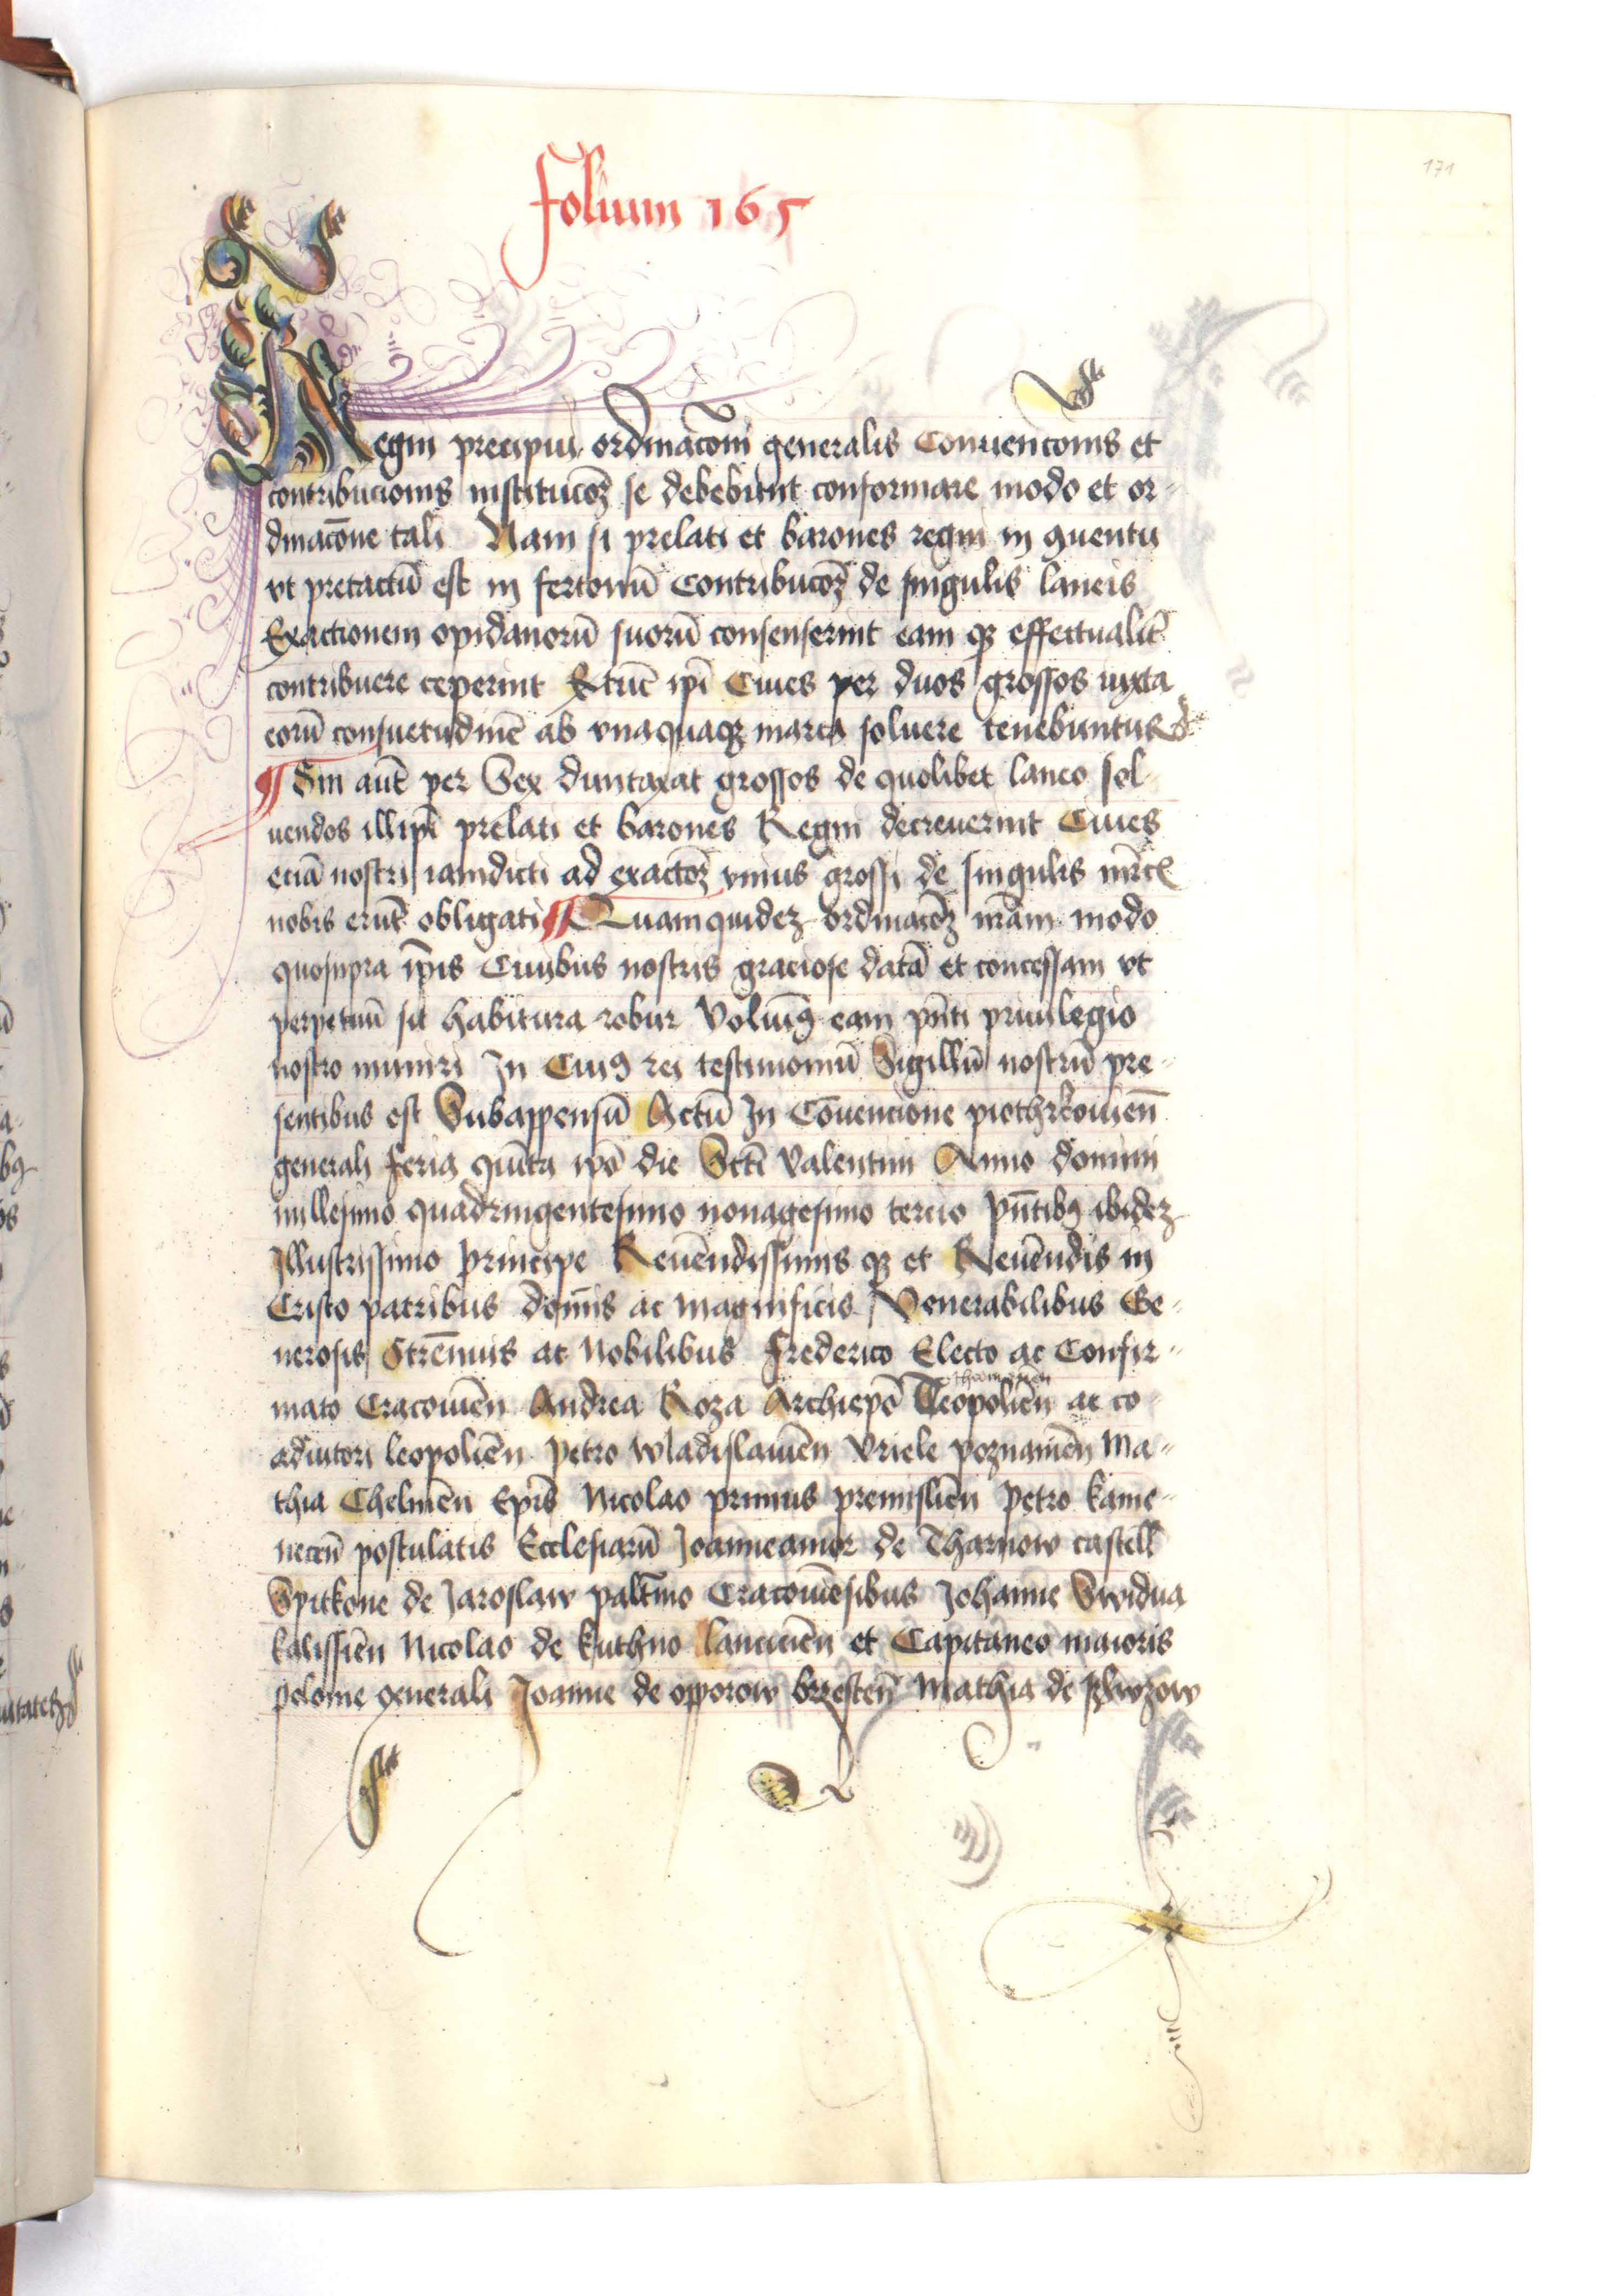 171
folium 165
Regni precipui ordinacõni generalis Conuencionis et
contribucionis institucõȝ se debebunt conformare modo et or-
dinacõne tali Nam si prelati et barones regni in quentu
vt pretactũ est in fertonũ Contribucõȝ de singulis laneis
Exactionem opidanorũ suorũ consenserint eam qȝ effectualit̃
contribuere ceperint Extũc ip̃i Ciues per duos grossos iuxta
eorũ consuetudinẽ ab vnaquaqȝ marca soluere tenebuntur
¶ Sin aũt per Sex duntaxat grossos de quolibet laneo sol-
uendos illi ip̃i prelati et barones Regni decreuerint Ciues
eciã nostri iamdicti ad exactõȝ vnius grossi de singulis mrc̃
nobis erũt obligati ¶ Quamquideȝ ordinacõȝ nr̃am modo
quosupra ip̃is Ciuibus nostris graciose datã et concessam vt
perpetuũ sit habitura robur Voluimꝰ eam pñti priuilegio
nostro muniri In Cuiꝰ rei testimoniũ Sigillũ nostrũ pre-
sentibus est Subappensũ Actũ In Cõuencione piothrkouieñ
generali feria quĩta ip̃o die Sc̃ti Valentini Anno domini
millesimo quadringentesimo nonagesimo tercio pñtibꝰ ibideȝ
Illustrissimo principe Reuẽndissimis qȝ et Reuẽndis in
Cristo patribus dom̃is ac magnificis Venerabilibus Ge-
nerosis Strẽnuis ac Nobilibus Frederico Electo ac Confir-
mato Cracouieñ Andrea Roza Archiep̃o Leopolieñ ac co
adiutori leopolieñ Petro wladislauieñ Vriele poznanieñ Ma-
thia Chelmeñ Ep̃is Nicolao primus premislieñ Petro kame-
neceñ postulatis Ecclesiarũ Joanneamor de Tharnow castell̃
Spitkone de Jaroslaw palt̃ino Cracouiẽsibus Johanne Swidua
kalissieñ Nicolao de kuthno lancicieñ et Capitaneo maioris
polonie generali Joanne de opporow brzesteñ Mathia de